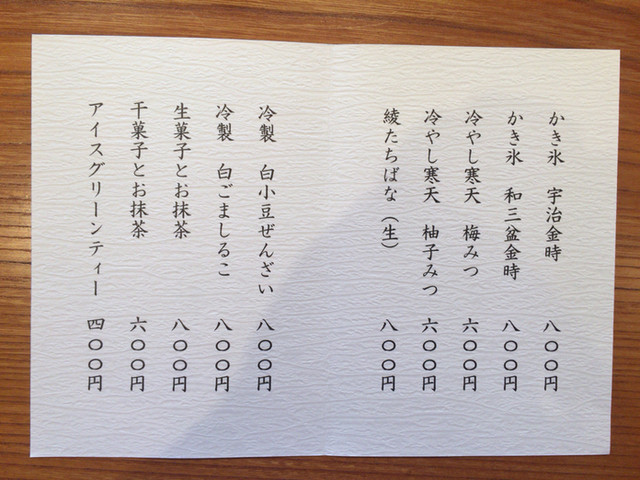 かき氷 宇治金時 八〇〇円
かき氷 和三盆金時 八〇〇円
冷やし寒天 梅みつ 六〇〇円
冷やし寒天 柚子みつ 六〇〇円
綾たちばな(生) 八〇〇円
冷製 白小豆ぜんざい 八〇〇円
冷製 白ごましるこ 八〇〇円
生菓子とお抹茶 八〇〇円
干菓子とお抹茶 六〇〇円
アイスグリーンティー 四〇〇円